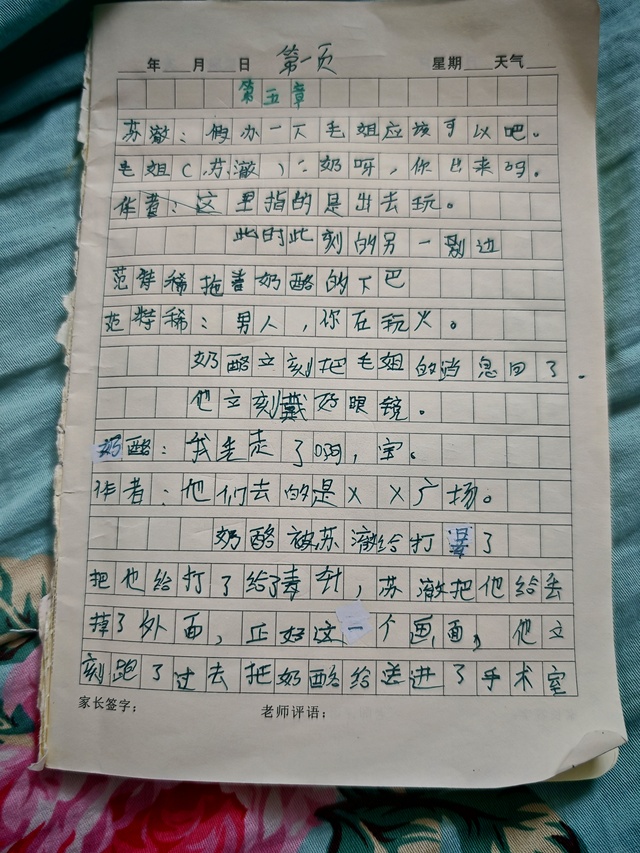 年 月 日 第一页 星期 天气
第五章
苏澈：假办一下毛姐应该可以吧。
毛姐（苏澈）：奶呀，你出来吗。
作者：这里指的是出去玩。
此时此刻的另一别边
范特稀拖着奶酪的下巴
范特稀：男人，你在玩火。
奶酪立刻把毛姐的消息回了.
他立刻戴好眼镜。
奶酪：我先走了啊，宝。
作者：他们去的是XX广场。
奶酪被苏澈给打晕了
把他给打了给了毒针，苏澈把他给丢
掉了外面，正好这一个画面，他立
刻跑了过去把奶酪给送进了手术室
家长签字： 老师评语：